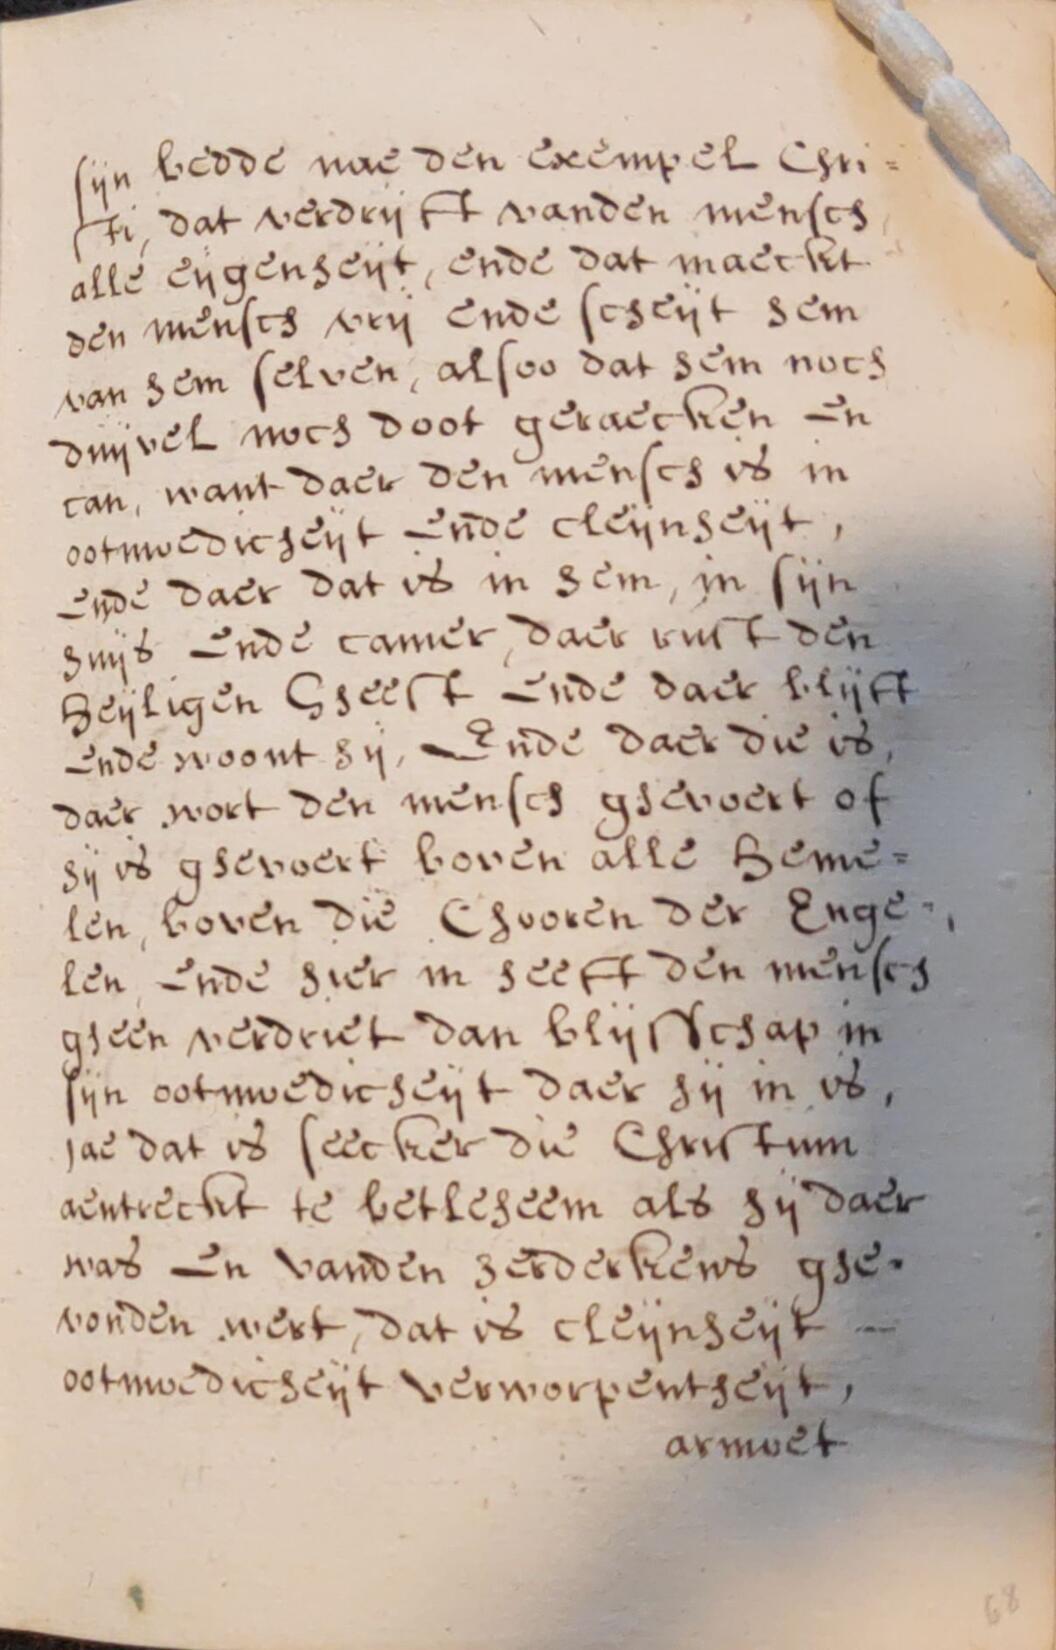 sijn bedde nae den exempel Chri=
sti, dat verdrijft vanden mensch
alle eijgenheijt, ende dat maeckt
den mensch vrij ende scheijt hem
van hem selven, alsoo dat hem noch
duijvel noch doot geraecken en
can, want daer den mensch is in
ootmoedicheijt ende cleijnheijt,
ende daer dat is in hem, in sijn
huijs ende camer, daer rust den
Heijligen Gheest ende daer blijft
ende woont hij, Ende daer die is,
daer wort den mensch ghevoert of
hij is ghevoert boven alle Heme=
len, boven die Chooren der Enge=
len, ende hier in heeft den mensch
gheen verdriet dan blijsschap in
sijn ootmoedicheijt daer hij in is,
jae dat is seecker die Christum
aentreckt te betleheem als hij daer
was en vanden herderkens ghe=
vonden wert, dat is cleijnheijt
ootmoedicheijt verworpentheijt,
armoet
68